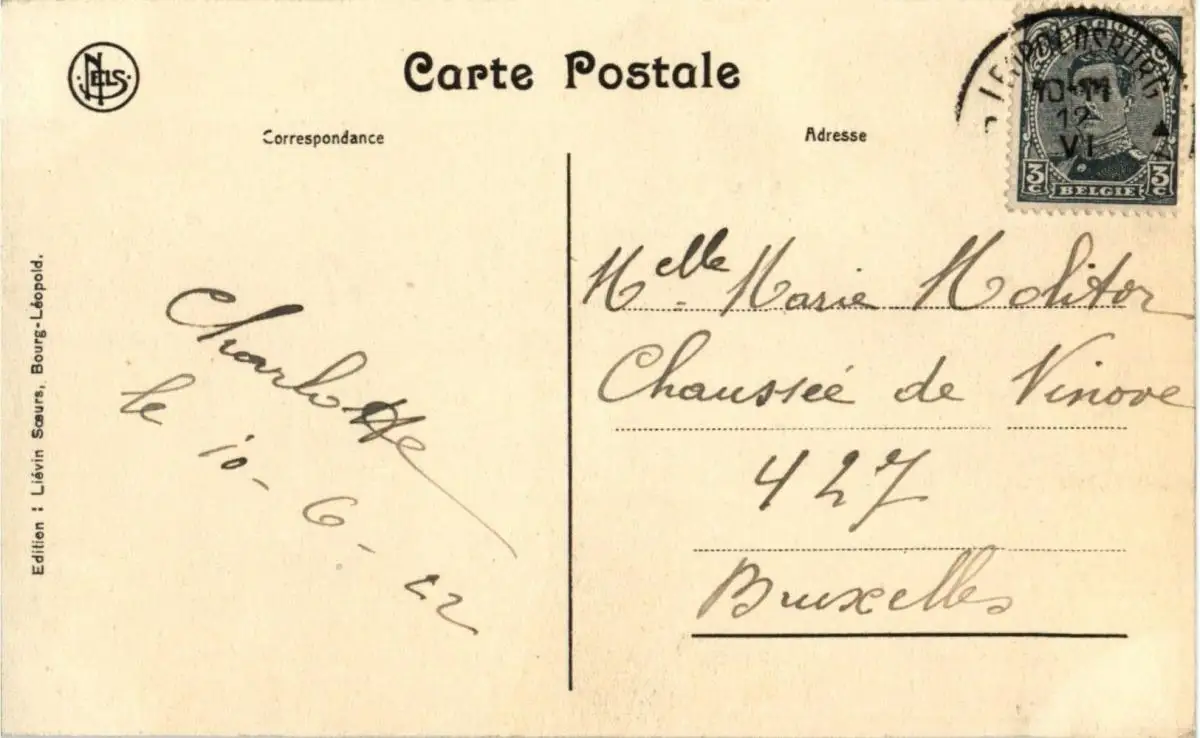 NELS
Carte Postale
Correspondance
Adresse
BELGIQUE
LEOPOLDSBURG
10-11
12
VI
3 C
BELGIE
3 C
Melle Marie Molitor
Chaussée de Ninove
427
Bruxelles
Charlotte
le 10-6-22
Edition : Liévin Sœurs, Bourg-Léopold.